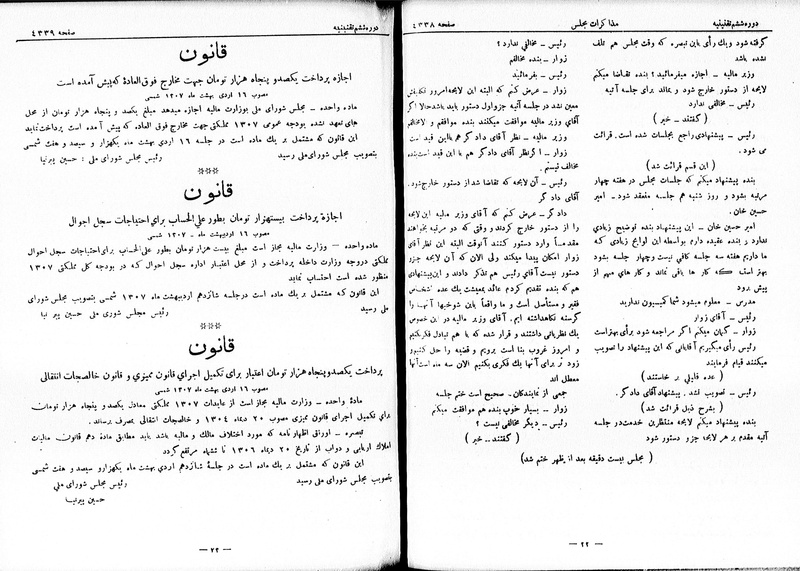 دوره ششم تقنینیه
مذاکرات مجلس
صفحه ۴۳۳۸
گرفته شود ویک رأی باین تبصره که وقت مجلس هم تلف
نشده باشد
وزیر مالیه – اجازه میفرمائید؟ بنده تقاضا میکنم
لایحه از دستور خارج شود و بماند برای جلسه آتیه
رئیس – مخالفی ندارد
( گفتند – خیر )
رئیس – پیشنهادی راجع بجلسات شده است. قرائت
می شود.
( این قسم قرائت شد )
بنده پیشنهاد میکنم که جلسات مجلس در هفته چهار
مرتبه بشود و روز شنبه هم جلسه منعقد شود – امیر
حسین خان.
امیر حسین خان – این پیشنهاد بنده توضیح زیادی
ندارد و بنده عقیده دارم بواسطه این لوایح زیادی که
ما داریم هفته سه جلسه کافی نیست و چهار جلسه بشود
بهتر است که کار ها باقی نماند و کار های مهم از
پیش برود
مدرس – معلوم میشود شما کمیسیون ندارید
رئیس – آقای زوار
زوار – گمان میکنم اگر مراجعه شود برأی بهتر است
رئیس رأی میگیریم آقایانی که این پیشنهاد را تصویب
میکنند قیام فرمایند
( عده قلیلی بر خاستند )
رئیس – تصویب نشد. پیشنهاد آقای دادگر.
( بشرح ذیل قرائت شد )
بنده پیشنهاد میکنم لایحه منتظرین خدمت در جلسه
آتیه مقدم بر هر لایحه جزو دستور شود
رئیس – مخالفی ندارد؟
زوار – بنده مخالفم
رئیس – بفرمائید
زوار – عرض کنم که البته این لایحه امروز تکلیفش
معین نشد در جلسه آتیه جزو اول دستور باید باشد حالا اگر
آقای وزیر مالیه موافقت میکنند بنده موافقم و لامخالفم
وزیر مالیه – نظر آقای دادگر هم با این قید است
زوار – اگر نظر آقای دادگر هم با این قید است بنده
مخالف نیستم.
رئیس – آن لایحه که تقاضا شد از دستور خارج شود.
آقای دادگر
دادگر – عرض کنم که آقای وزیر مالیه این لایحه
را از دستور خارج کردند و وقتی که دو مرتبه بخواهند
مقدمتاً وارد دستور کنند آنوقت البته این نظر آقای
زوار امکان پیدا میکند ولی الان که آن لایحه جزو
دستور نیست آقای رئیس هم تذکر دادند و این پیشنهادی
هم که بنده تقدیم کردم عائد بمعیشت یک عده اشخاص
فقیر و مستأصل است و ما واقعاً باین شوخیها آنها را
گرسنه نگاهداشته ایم. آقای وزیر مالیه در این خصوص
یک نظریاتی داشتند و قرار شده که با هم تبادل فکر بکنیم
و امروز غروب بنا است برویم و قضیه را حل کنیم و
زود تر برای آنها یک فکری بکنیم الان سه ماه است آنها
معطل اند
جمعی از نمایندگان – صحیح است ختم جلسه
زوار – بسیار خوب بنده هم موافقت میکنم
رئیس – دیگر مخالفی نیست؟
( گفتند – خیر )
( مجلس بیست دقیقه بعد از ظهر ختم شد )
– ۲۲ –
دوره ششم تقنینیه
صفحه ۴۳۳۹
قانون
اجازه پرداخت یکصد و پنجاه هزار تومان جهت مخارج فوق العادۀ که پیش آمده است
مصوب ۱۶ اردی بهشت ماه ۱۳۰۷ شمسی
ماده واحده – مجلس شورای ملی بوزارت مالیه اجازه میدهد مبلغ یکصد و پنجاه هزار تومان از محل
های تعهد نشده بودجه عمومی ۱۳۰۷ مملکتی جهت مخارج فوق العاده که پیش آمده است پرداخت نماید
این قانون که مشتمل بر یك ماده است در جلسه ۱۶ اردی بهشت ماه یکهزار و سیصد و هفت شمسی
بتصویب مجلس شورای ملی رسید
رئیس مجلس شورای ملی : حسین پیرنیا
***
قانون
اجازۀ پرداخت بیست هزار تومان بطور علی الحساب برای احتیاجات سجل احوال
مصوب ۱۶ اردیبهشت ماه – ۱۳۰۷ شمسی
ماده واحده – وزارت مالیه مجاز است مبلغ بیست هزار تومان بطور علی الحساب برای احتیاجات سجل احوال
مملکتی در وجه وزارت داخله پرداخت و از محل اعتبار اداره سجل احوال که در بودجه کل مملکتی ۱۳۰۷
منظور شده است احتساب نماید
این قانون که مشتمل بر یك ماده است در جلسه شانزدهم اردیبهشت ماه ۱۳۰۷ شمسی بتصویب مجلس شورای
ملی رسید
رئیس مجلس شورای ملی – حسین پیر نیا
***
قانون
پرداخت یکصد و پنجاه هزار تومان اعتبار برای تکمیل اجرای قانون ممیزی و قانون خالصجات انتقالی
مصوب ۱۶ اردی بهشت ماه ۱۳۰۷ شمسی
مادۀ واحده – وزارت مالیه مجاز است از عایدات ۱۳۰۷ مملکتی معادل یکصد و پنجاه هزار تومان
برای تکمیل اجرای قانون ممیزی مصوب ۲۰ دیماه ۱۳۰۴ و خالصجات انتقالی بمصرف برساند.
تبصره – اوراق اظهارنامه که مورد اختلاف مالك و مالیه باشد باید مطابق مادۀ دهم قانون مالیات
املاك اربابی و دواب از تاریخ ۲۰ دیماه ۱۳۰۶ تا ششماه مرتفع گردد
این قانون که مشتمل بر یك ماده است در جلسۀ شانزدهم اردی بهشت ماه یکهزار و سیصد و هفت شمسی
بتصویب مجلس شورای ملی رسید
رئیس مجلس شورای ملی
حسین پیرنیا
– ۲۳ –